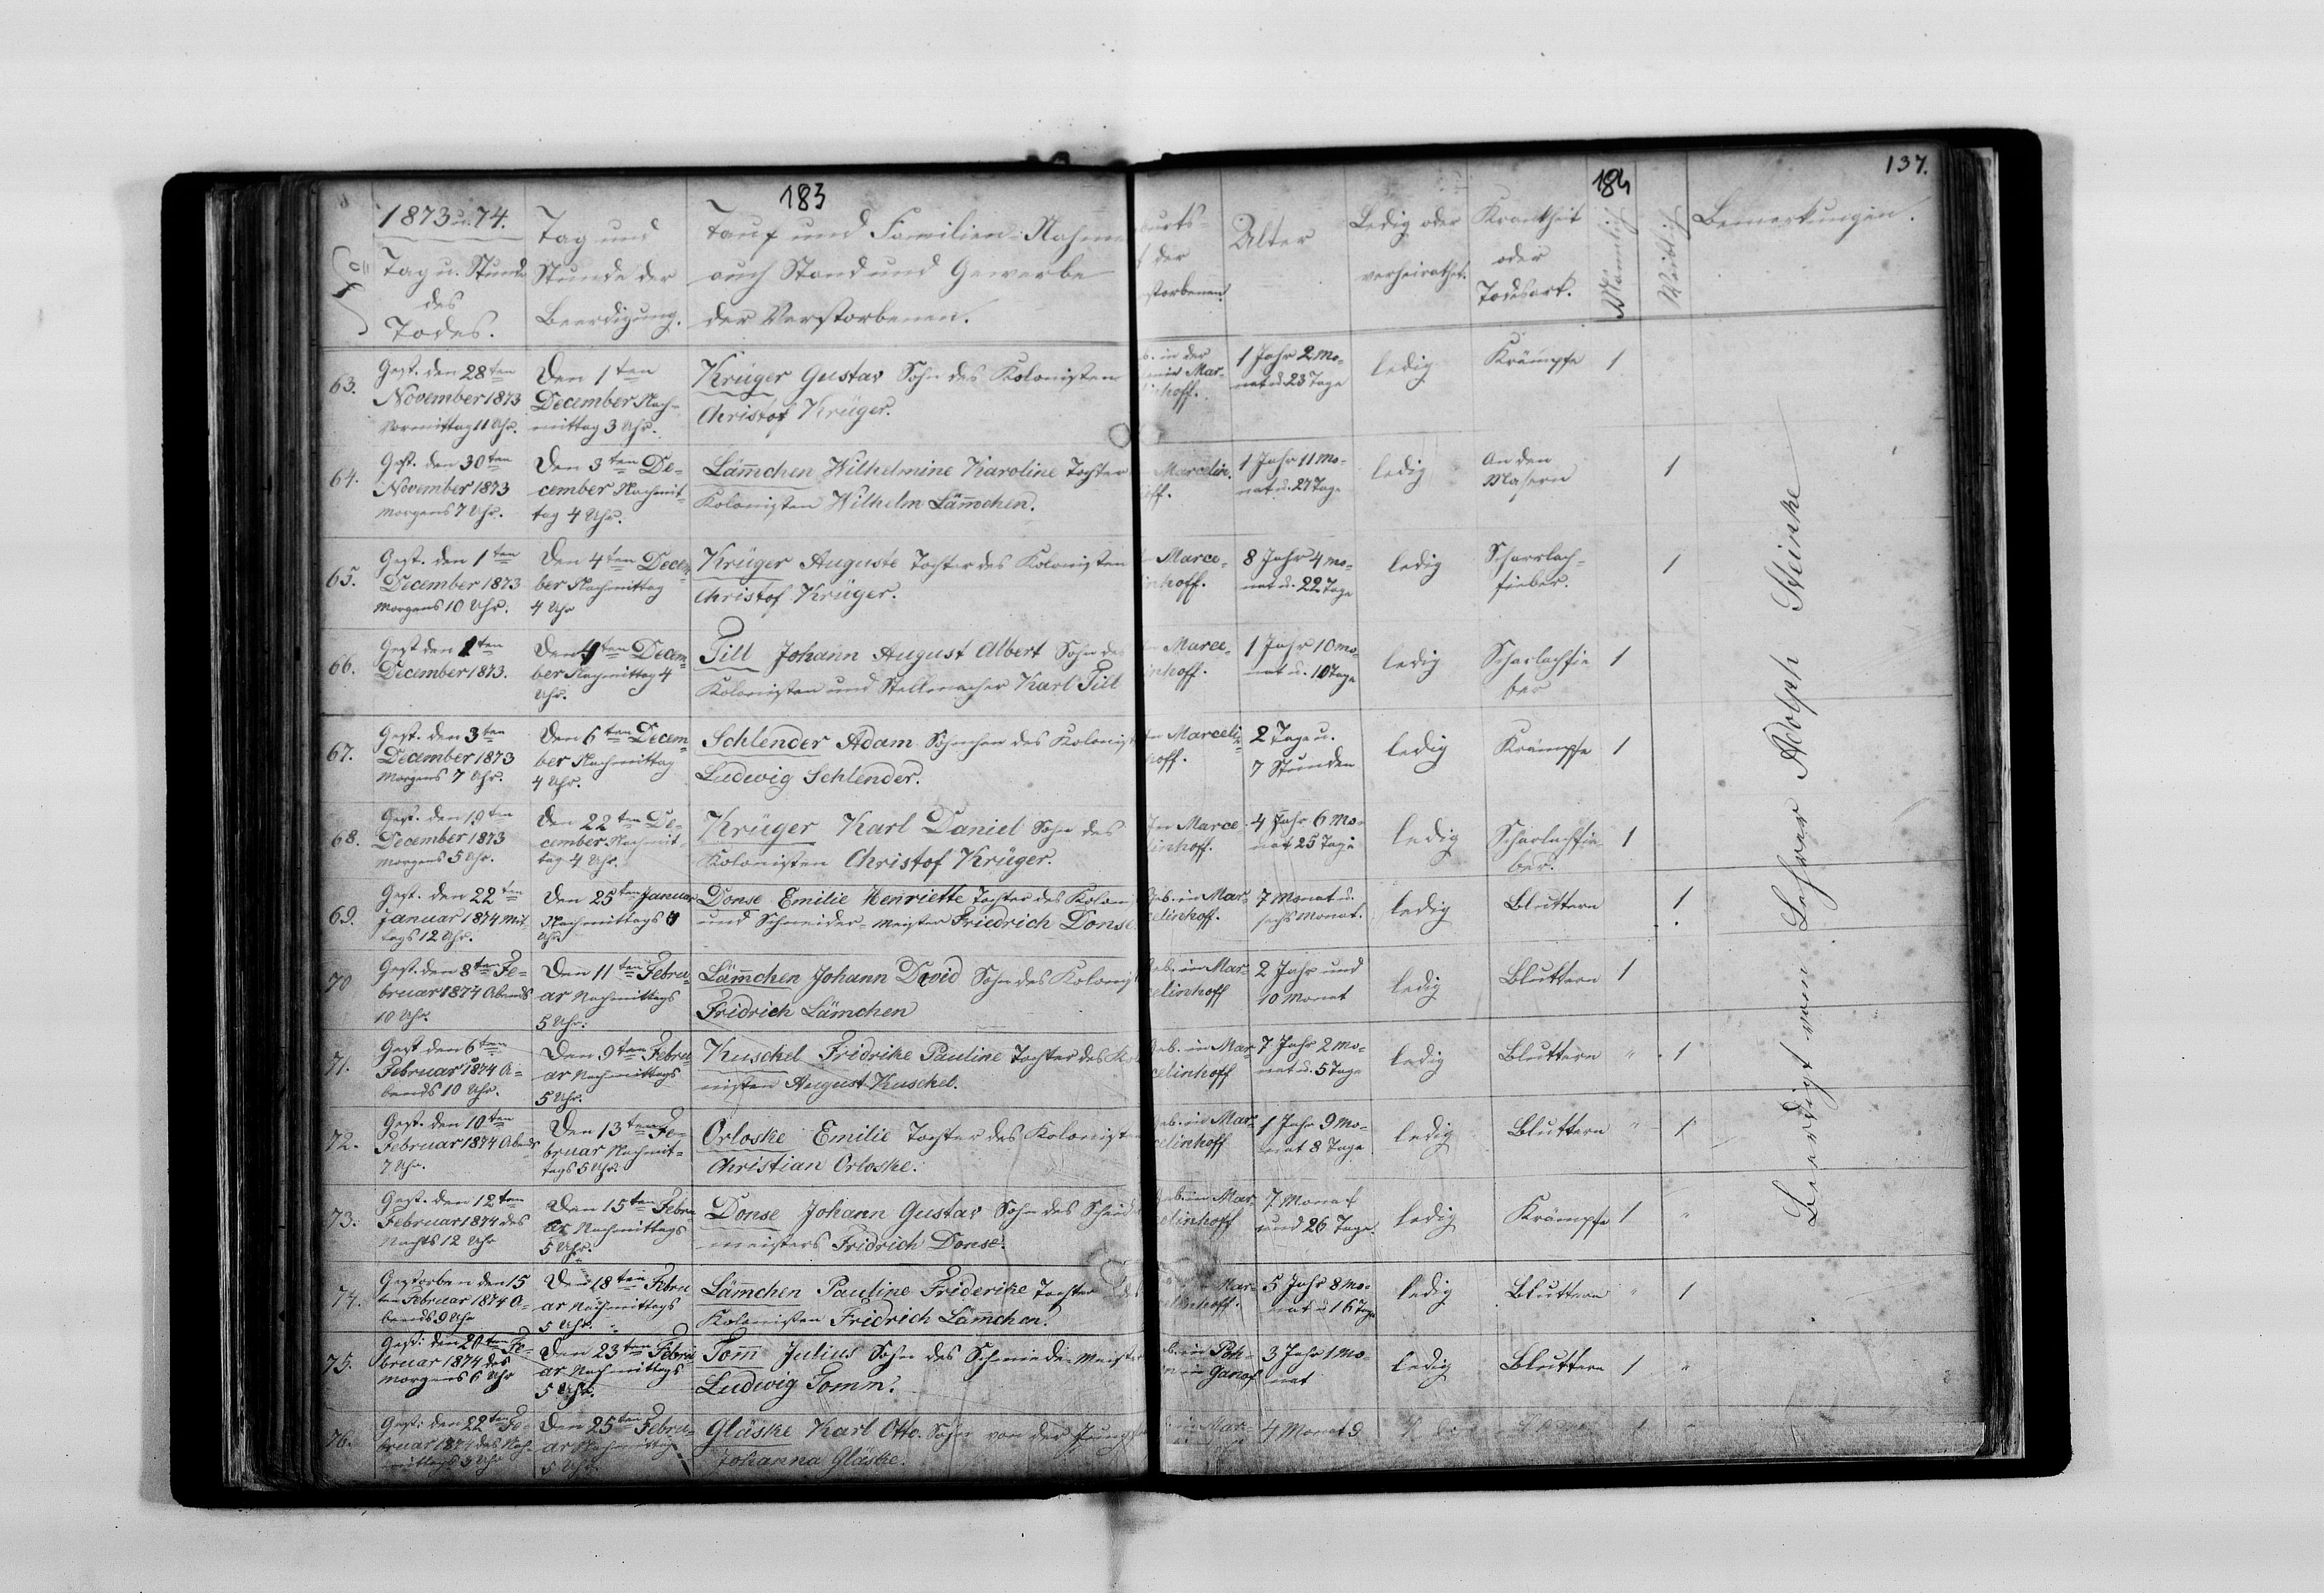 183
184
137.
No
1873 u. 74.
Tag u. Stunde
des
Todes.
Tag und
Stunde der
Beerdigung.
Tauf und Familien-Nahme
auch Stand und Gewerbe
der Verstorbenen.
burts-
der
storbenen
Alter
Ledig oder
verheirathet.
Krankheit
oder
Todesart.
Männlich
Weiblich
Bemerkungen.
63.
Gest. den 28ten
November 1873
Vormittag 11 Uhr.
Den 1ten
December Nach-
mittag 3 Uhr.
Krüger Gustav Sohn des Kolonisten
Christof Krüger.
b. in der
Mar-
inhoff.
1 Jahr 2 Mo-
nat u. 23 Tage
ledig
Krämpfe
1
64.
Gest. den 30ten
November 1873
Morgens 7 Uhr.
Den 3ten De-
cember Nachmit-
tag 4 Uhr.
Läm̅chen Wilhelmine Karoline Tochter
Kolonisten Wilhelm Läm̅chen.
Marcelin.
off.
1 Jahr 11 Mo-
nat u. 27 Tage
ledig
An den
Masern
1
65.
Gest. den 1ten
December 1873
Morgens 10 Uhr.
Den 4ten Decem-
ber Nachmittag
4 Uhr
Krüger Auguste Tochter des Kolonisten
Christof Krüger.
Marce-
inhoff.
8 Jahr 4 Mo-
nat u. 22 Tage
ledig
Scharlach-
fieber.
1
66.
Gest den 1ten
December 1873.
Den 4ten Decem-
ber Nachmittag 4
Uhr.
Till Johann August Albert Sohn des
Kolonisten und Stellmacher Karl Till
Marce-
inhoff.
1 Jahr 10 Mo-
nat u. 10 Tage
ledig
Scharlachfie
ber
1
67.
Gest. den 3ten
December 1873
Morgens 7 Uhr.
Den 6ten Decem-
ber Nachmittag
4 Uhr.
Schlender Adam Söhnchen des Kolonist
Ludwig Schlender.
Marcelin-
hoff.
2 Tage u.
7 Stunden
ledig
Krämpfe
1
68.
Gest. den 19ten
December 1873
Morgens 5 Uhr.
Den 22ten De-
cember Nachmit
tag 4 Uhr.
Krüger Karl Daniel Sohn des
Kolonisten Christof Krüger.
In Marce
linhoff.
4 Jahr 6 Mo-
nat 25 Tage
ledig
Scharlachfie-
ber.
1
69.
Gest. den 22ten
Januar 1874 Mit-
tags 12 Uhr.
Den 25ten Januar
Nachmittags 4
Uhr
Donse Emilie Henriette Tochter des Koloni
und Schneider-Meister Friedrich Donse
Geb. in Mar-
celinhoff.
7 Monat u.
sechs Monat.
ledig
Blattern
1
70
Gest. den 8ten Fe-
bruar 1874 Abends
10 Uhr.
Den 11ten Febru-
ar Nachmittags
5 Uhr.
Läm̅chen Johann David Sohn des Kolonist
Fridrich Lämchen
Geb. in Mar-
celinhoff
2 Jahr und
10 Monat
ledig
Blattern
1
71.
Gest den 6ten
Februar 1874 A-
bends 10 Uhr.
Den 9ten Febru-
ar Nachmittags
5 Uhr.
Kuschel Fridrike Pauline Tochter des Kol
nisten August Kuschel.
Geb. in Mar
celinhoff
7 Jahr 2 Mo-
nat u. 5 Tage
ledig
Blattern
"
1
72.
Gest. den 10ten
Februar 1874 Abends
7 Uhr.
Den 13ten Fe-
bruar Nachmit-
tags 5 Uhr.
Orloske Emilie Tochter des Koloniste
Christian Orloske.
Geb. in Mar
celinhoff
1 Jahr 9 Mo-
nat 8 Tage
ledig
Blattern
"
1
73.
Gest. den 12ten
Februar 1874 des
Nachts 12 Uhr
Den 15ten Febru
ar Nachmittags
5 Uhr.
Donse Johann Gustav Sohn des Schneid
meisters Fridrich Donse.
Geb. in Mar
celinhoff
7 Monat
und 26 Tage.
ledig
Krämpfe
1
"
74.
Gestorben den 15
ten Februar 1874 A-
bends 9 Uhr
Den 18ten Febru
ar Nachmittags
5 Uhr.
Läm̅chen Pauline Friderike Tochter des
Kolonisten Fridrich Läm̅chen.
Mar-
celinhoff.
5 Jahr 8 Mo-
nat u 16 Tage
ledig
Blattern
"
1
75.
Gest: den 20ten Fe-
bruar 1874 des
Morgens 6 Uhr
Den 23ten Febru
ar Nachmittags
5 Uhr.
Tom̅ Julius Sohn des Schmiede-Meister
Ludwig Tomm.
3 Jahr 1 Mo-
nat
ledig
Blattern
1
"
76.
Gest: den 22ten Fe-
bruar 1874 des Nach-
mittags 3 Uhr
Den 25ten Febru-
ar Nachmittags
5 Uhr.
Gläske Karl Otto. Sohn von der Jungfr
Johanna Gläske.
in Mar-
4 Monat
1
Beerdigt vom Lehrer Adolph Steinke